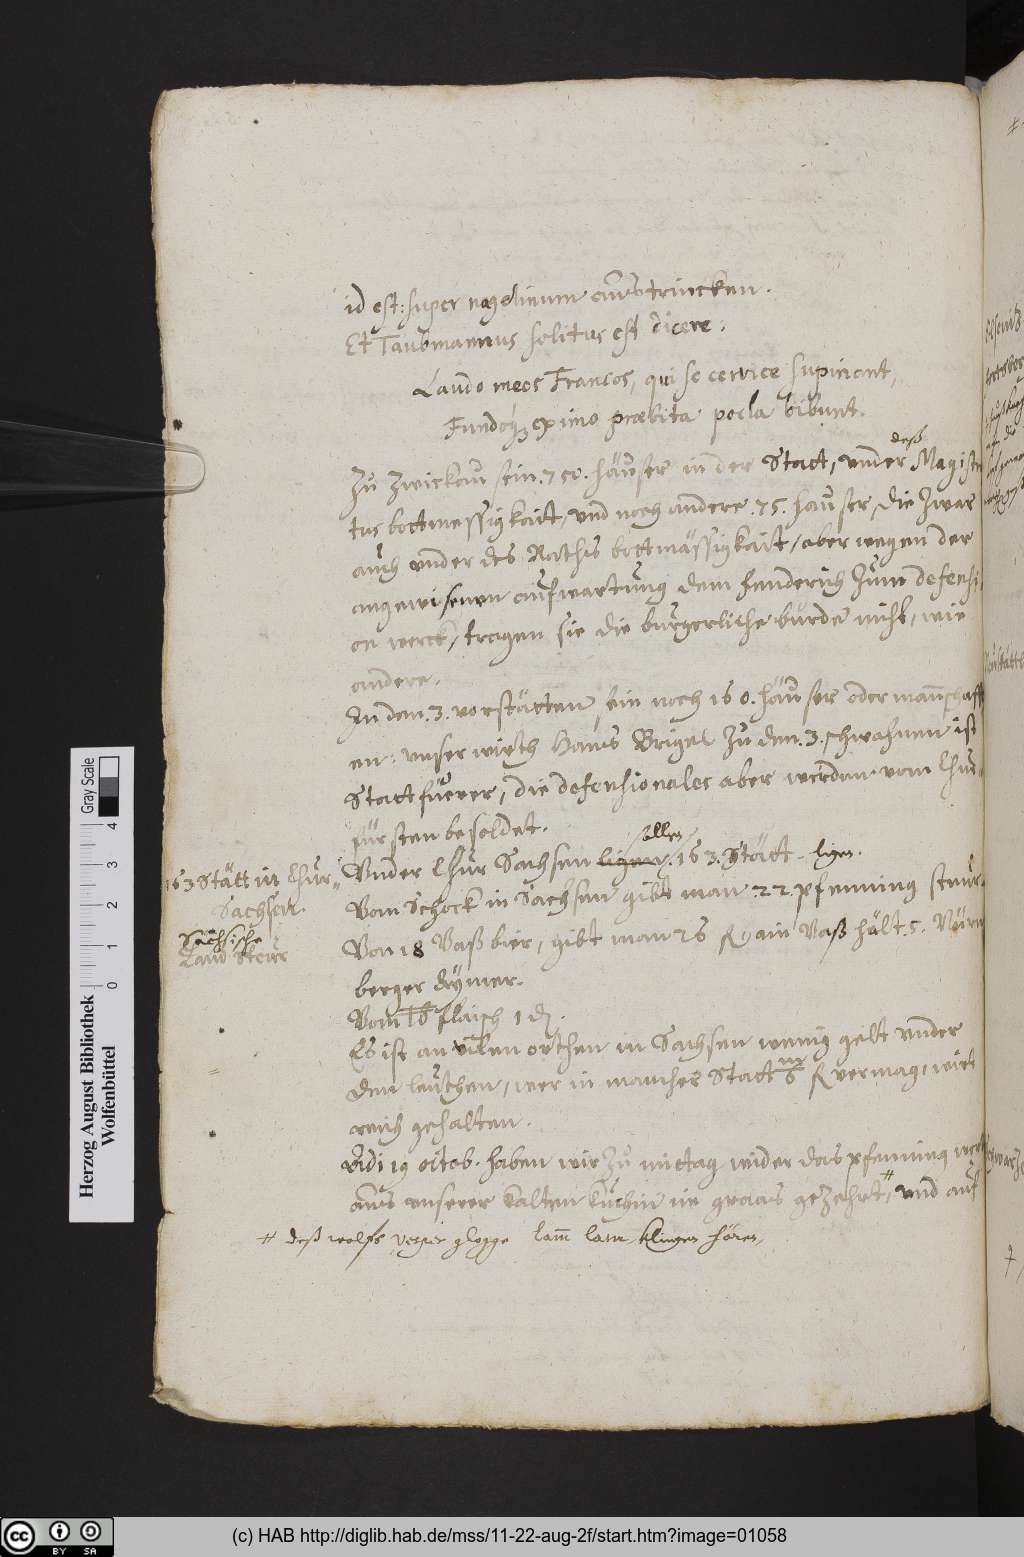 id est: super nagelinum austrincken.
Et Taubmannus solitus est dicere:
Laudo meos Francos, qui se cervice supinant,
Fundoqꝫ ex imo præbita pocla bibunt.
Zu Zwickau sein .750. häuser in der Statt, under deß Magistra
tus bottmessigkait, und noch andere .75. hauser, die zwar
auch under des Raths bottmässigkait, aber wegen der
angewisenen aufwartung dem fenderich zum defensi
on werck, tragen sie die burgerliche burde nicht, wie
andere.
In den .3. vorstätten, sein noch 160. häuser oder mannschafft
en: unser wirth Hans Brigel zu den .3. schwahnen ist
Stattfuerer, die defensionales aber werden vom Chur-
fürsten besoldet.
163 Stätt in Chur-
Sachsen.
Under Chur Sachsen ligen sollen .163. Stätt ligen.
Vom Schock in Sachsen gibt man .22. pfenning steur.
Sächsische
Land Steur
Von 18 Vaß bier, gibt man 26 R ain Vaß hält .5. Nürn
berger Eymer.
Vom lb flaisch 1 d.
Es ist an vilen orthen in Sachsen wenig gelt under
den leuthen, wer in mancher Statt 6 R vermag, wirt
reich gehalten.
Adi 19 octob. haben wir zu mittag wider das pfenning werth
aus unserer kalten kuchin im graas gezehrt, # und auf
# deß wolfs glogge lam klingen hören,
Herzog August Bibliothek
Wolfenbüttel
Gray Scale
0 1 2 3 4
(c) HAB http://diglib.hab.de/mss/11-22-aug-2f/start.htm?image=01058
CC BY SA